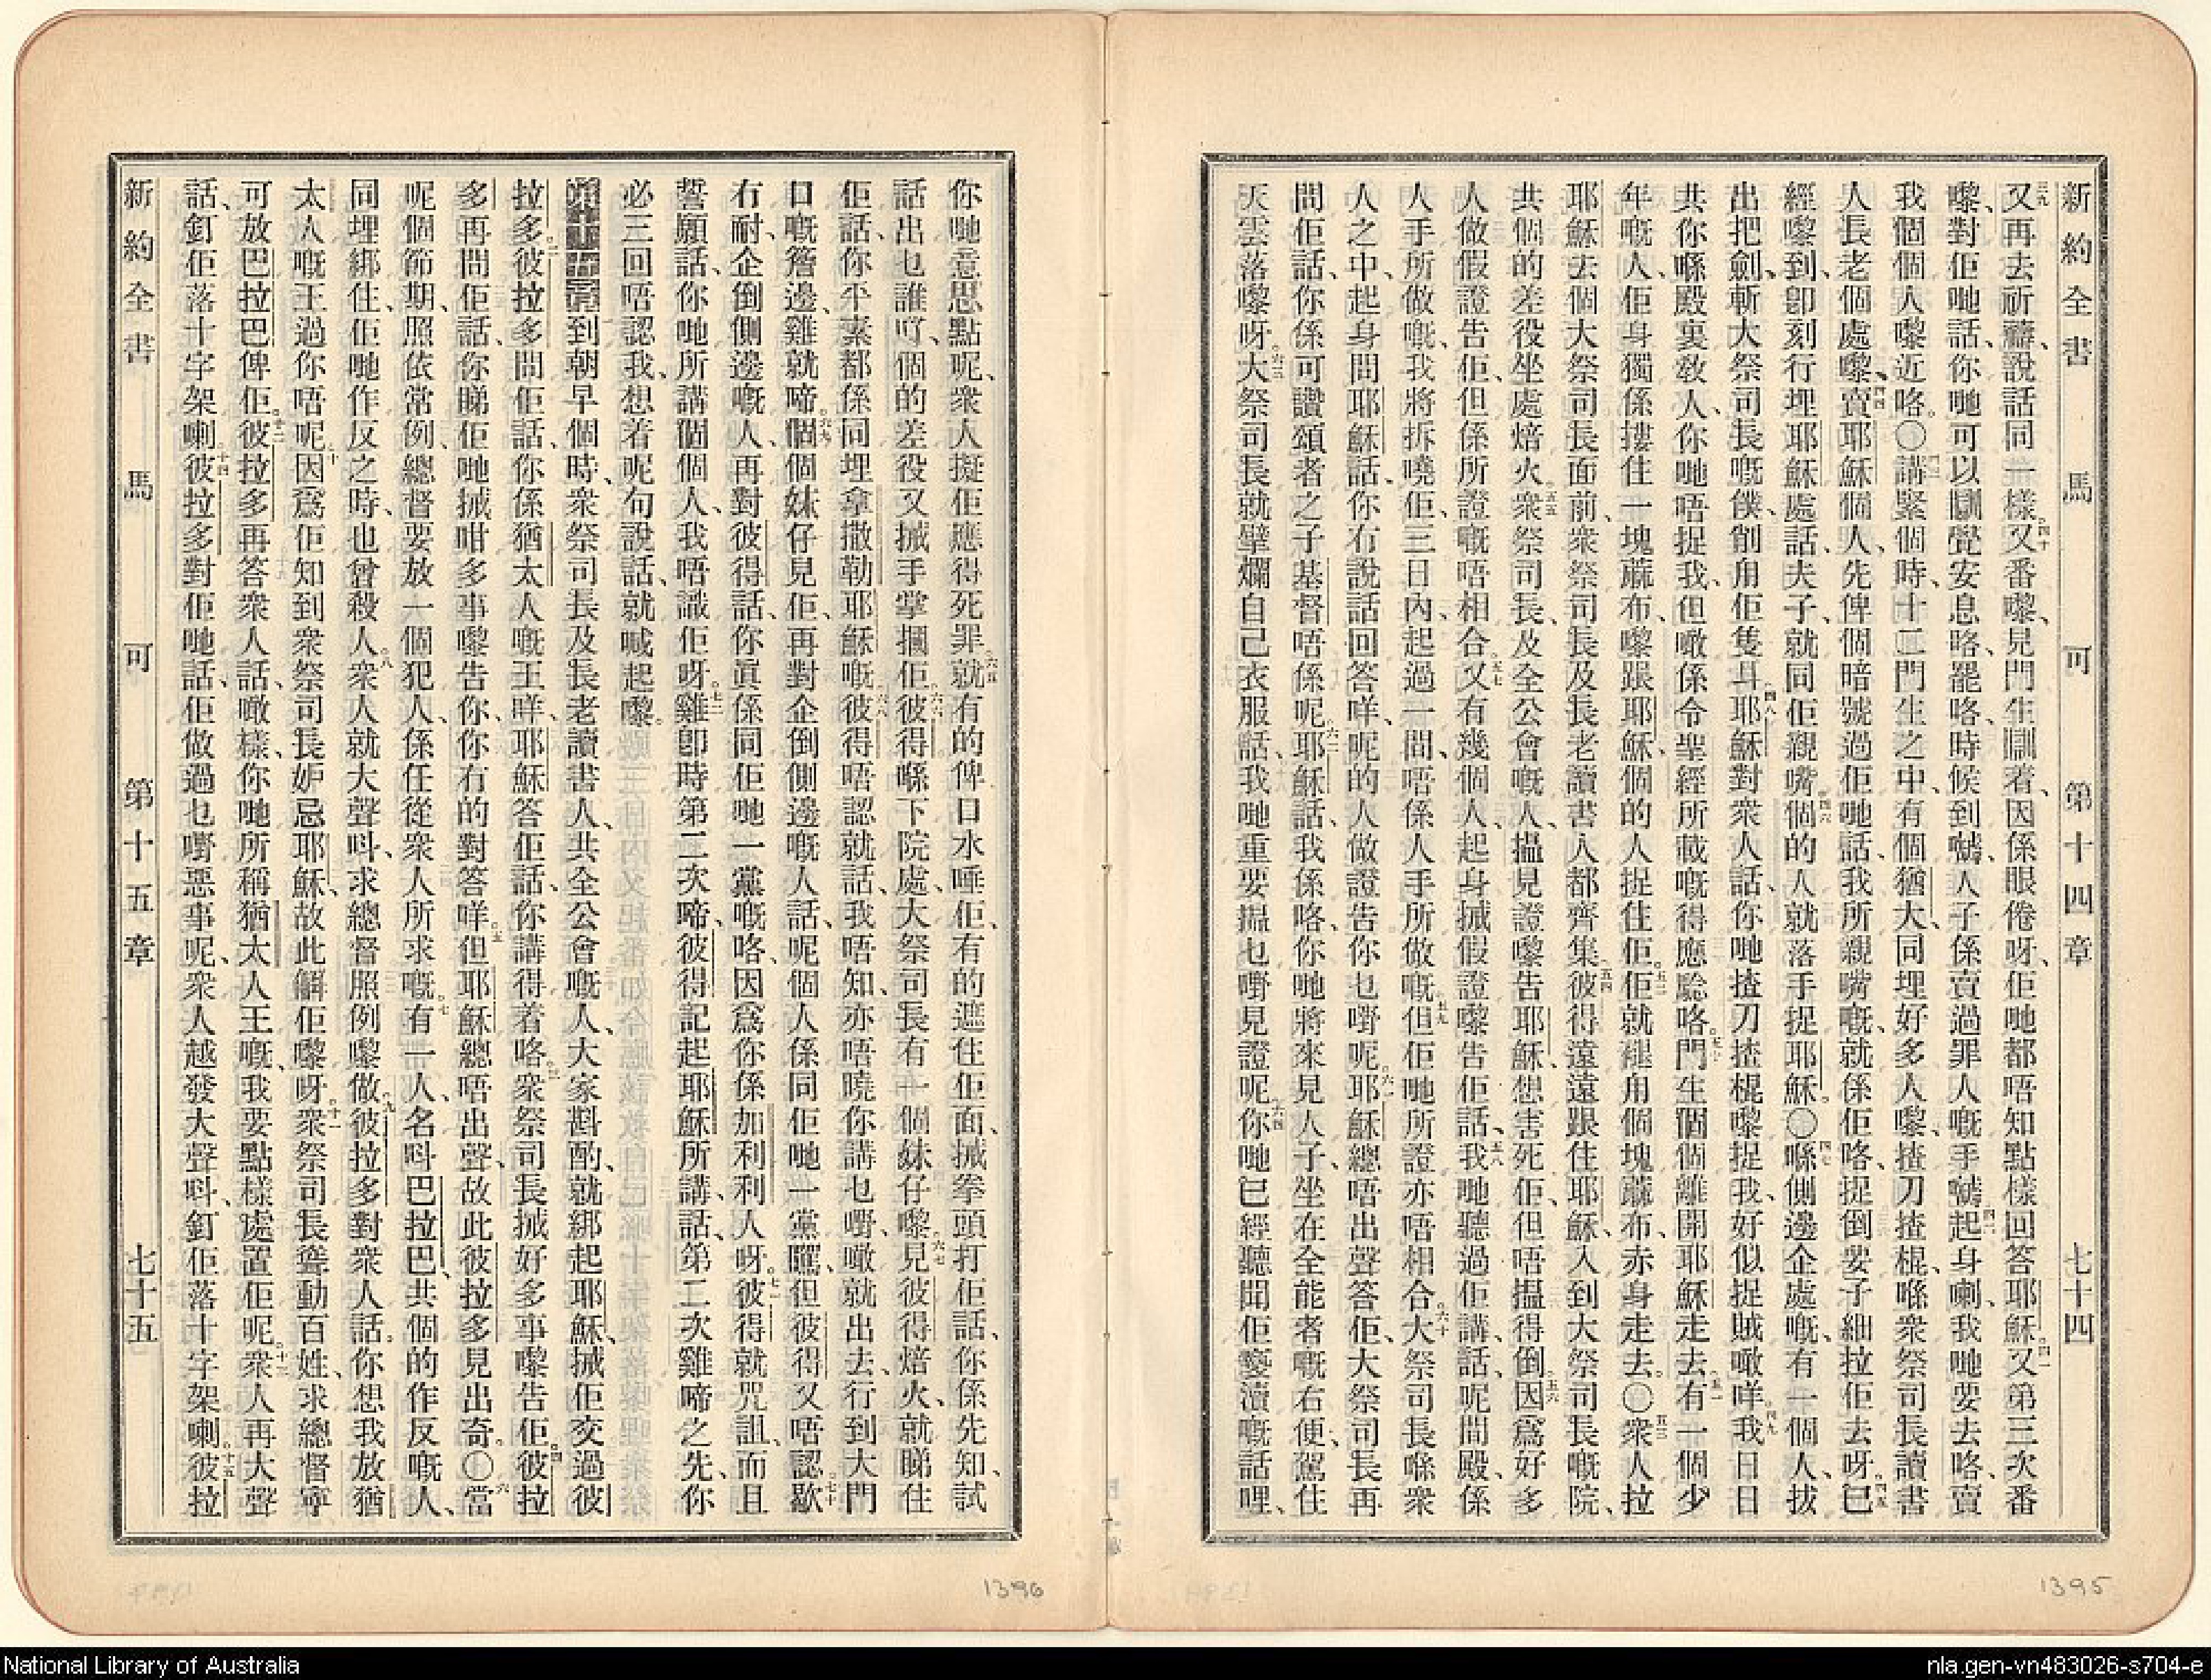 新約全書 馬可 第十四章 七十四
又再去祈禱、說話同一樣、又番嚟、見門生瞓着、因係眼倦呀、佢哋都唔知點樣回答耶穌。又第三次番
嚟、對佢哋話、你哋可以瞓覺安息咯、罷咯、時候到嚹、人子係賣過罪人嘅手嚹、起身喇、我哋要去咯、賣
我個個人嚟近咯。〇講緊個時、十二門生之中、有個猶大、同埋好多人嚟、揸刀揸棍、喺衆祭司長讀書
人長老個處嚟、賣耶穌個人、先俾個暗號過佢哋話、我所親嘴嘅、就係佢咯、捉倒要子細拉佢去呀。已
經嚟到、卽刻行埋耶穌處話、夫子、就同佢親嘴、個的人就落手捉耶穌。〇喺側邊企處嘅、有一個人、拔
出把劍、斬大祭司長嘅僕、削甪佢隻耳、耶穌對衆人話、你哋揸刀揸棍嚟捉我、好似捉賊噉咩、我日日
共你喺殿裏敎人、你哋唔捉我、但噉係令聖經所載嘅得應騐咯。門生個個離開耶穌走去、有一個少
年嘅人、佢身獨係摟住一塊蔴布、嚟跟耶穌、個的人捉住佢。佢就褪甪個塊蔴布、赤身走去。〇衆人拉
耶穌去個大祭司長面前、衆祭司長及長老讀書人都齊集、彼得遠遠跟住耶穌、入到大祭司長嘅院、
共個的差役坐處焙火。衆祭司長、及全公會嘅人、搵見證嚟告耶穌、想害死佢、但唔搵得倒、因爲好多
人做假證告佢、但係所證嘅唔相合、又有幾個人、起身搣假證嚟告佢話、我哋聽過佢講話、呢間殿、係
人手所做嘅、我將拆嘵佢、三日內、起過一間、唔係人手所做嘅、但佢哋所證亦唔相合。大祭司長喺衆
人之中、起身問耶穌話、你冇說話回答咩、呢的人做證告你乜嘢呢、耶穌總唔出聲答佢、大祭司長再
問佢話、你係可讚頌者之子基督唔係呢、耶穌話、我係咯、你哋將來見人子、坐在全能者嘅右便、駕住
天雲落嚟呀。大祭司長就擘爛自己衣服話、我哋重要搵乜嘢見證呢、你哋已經聽聞佢褻瀆嘅話哩、
你哋意思點呢、衆人擬佢應得死罪、就有的俾口水唾佢、有的遮住佢面、搣拳頭打佢話、你係先知、試
話出乜誰吖、個的差役又搣手掌摑佢。彼得喺下院處、大祭司長有一個妹仔嚟、見彼得焙火、就睇住
佢話、你平素都係同埋拿撒勒耶穌嘅、彼得唔認、就話、我唔知、亦唔曉你講乜嘢、噉就出去、行到大門
口嘅簷邊、雞就啼。個個妹仔見佢、再對企倒側邊嘅人話、呢個人係同佢哋一黨𠺢、但彼得又唔認、歇
冇耐、企倒側邊嘅人、再對彼得話、你眞係同佢哋一黨嘅咯、因爲你係加利利人呀。彼得就咒詛、而且
誓願話、你哋所講個個人、我唔識佢呀。雞卽時第二次啼、彼得記起耶穌所講話、第二次雞啼之先、你
必三回唔認我、想着呢句說話、就喊起嚟。
第十五章到朝早個時、衆祭司長及長老讀書人、共全公會嘅人、大家斟酌、就綁起耶穌、搣佢交過彼
拉多。彼拉多問佢話、你係猶太人嘅王咩、耶穌答佢話、你講得着咯、衆祭司長搣好多事嚟告佢。彼拉
多再問佢話、你睇佢哋搣咁多事嚟告你、你有的對答咩。但耶穌總唔出聲、故此彼拉多見出奇。〇當
呢個節期、照依常例、總督要放一個犯人、係任從衆人所求嘅。有一人、名呌巴拉巴、共個的作反嘅人、
同埋綁住、佢哋作反之時、也曾殺人。衆人就大聲呌、求總督照例嚟做、彼拉多對衆人話。你想我放猶
太人嘅王過你唔呢、因爲佢知到衆祭司長妒忌耶穌、故此解佢嚟呀。衆祭司長聳動百姓、求總督寧
可放巴拉巴俾佢。彼拉多再答衆人話、噉樣、你哋所稱猶太人王嘅、我要點樣處置佢呢。衆人再大聲
話、釘佢落十字架喇、彼拉多對佢哋話、佢做過乜嘢惡事呢、衆人越發大聲呌、釘佢落十字架喇。彼拉
新約全書 馬可 第十五章 七十五
1396
1395
National Library of Australia
nla.gen-vn483026-s704-e